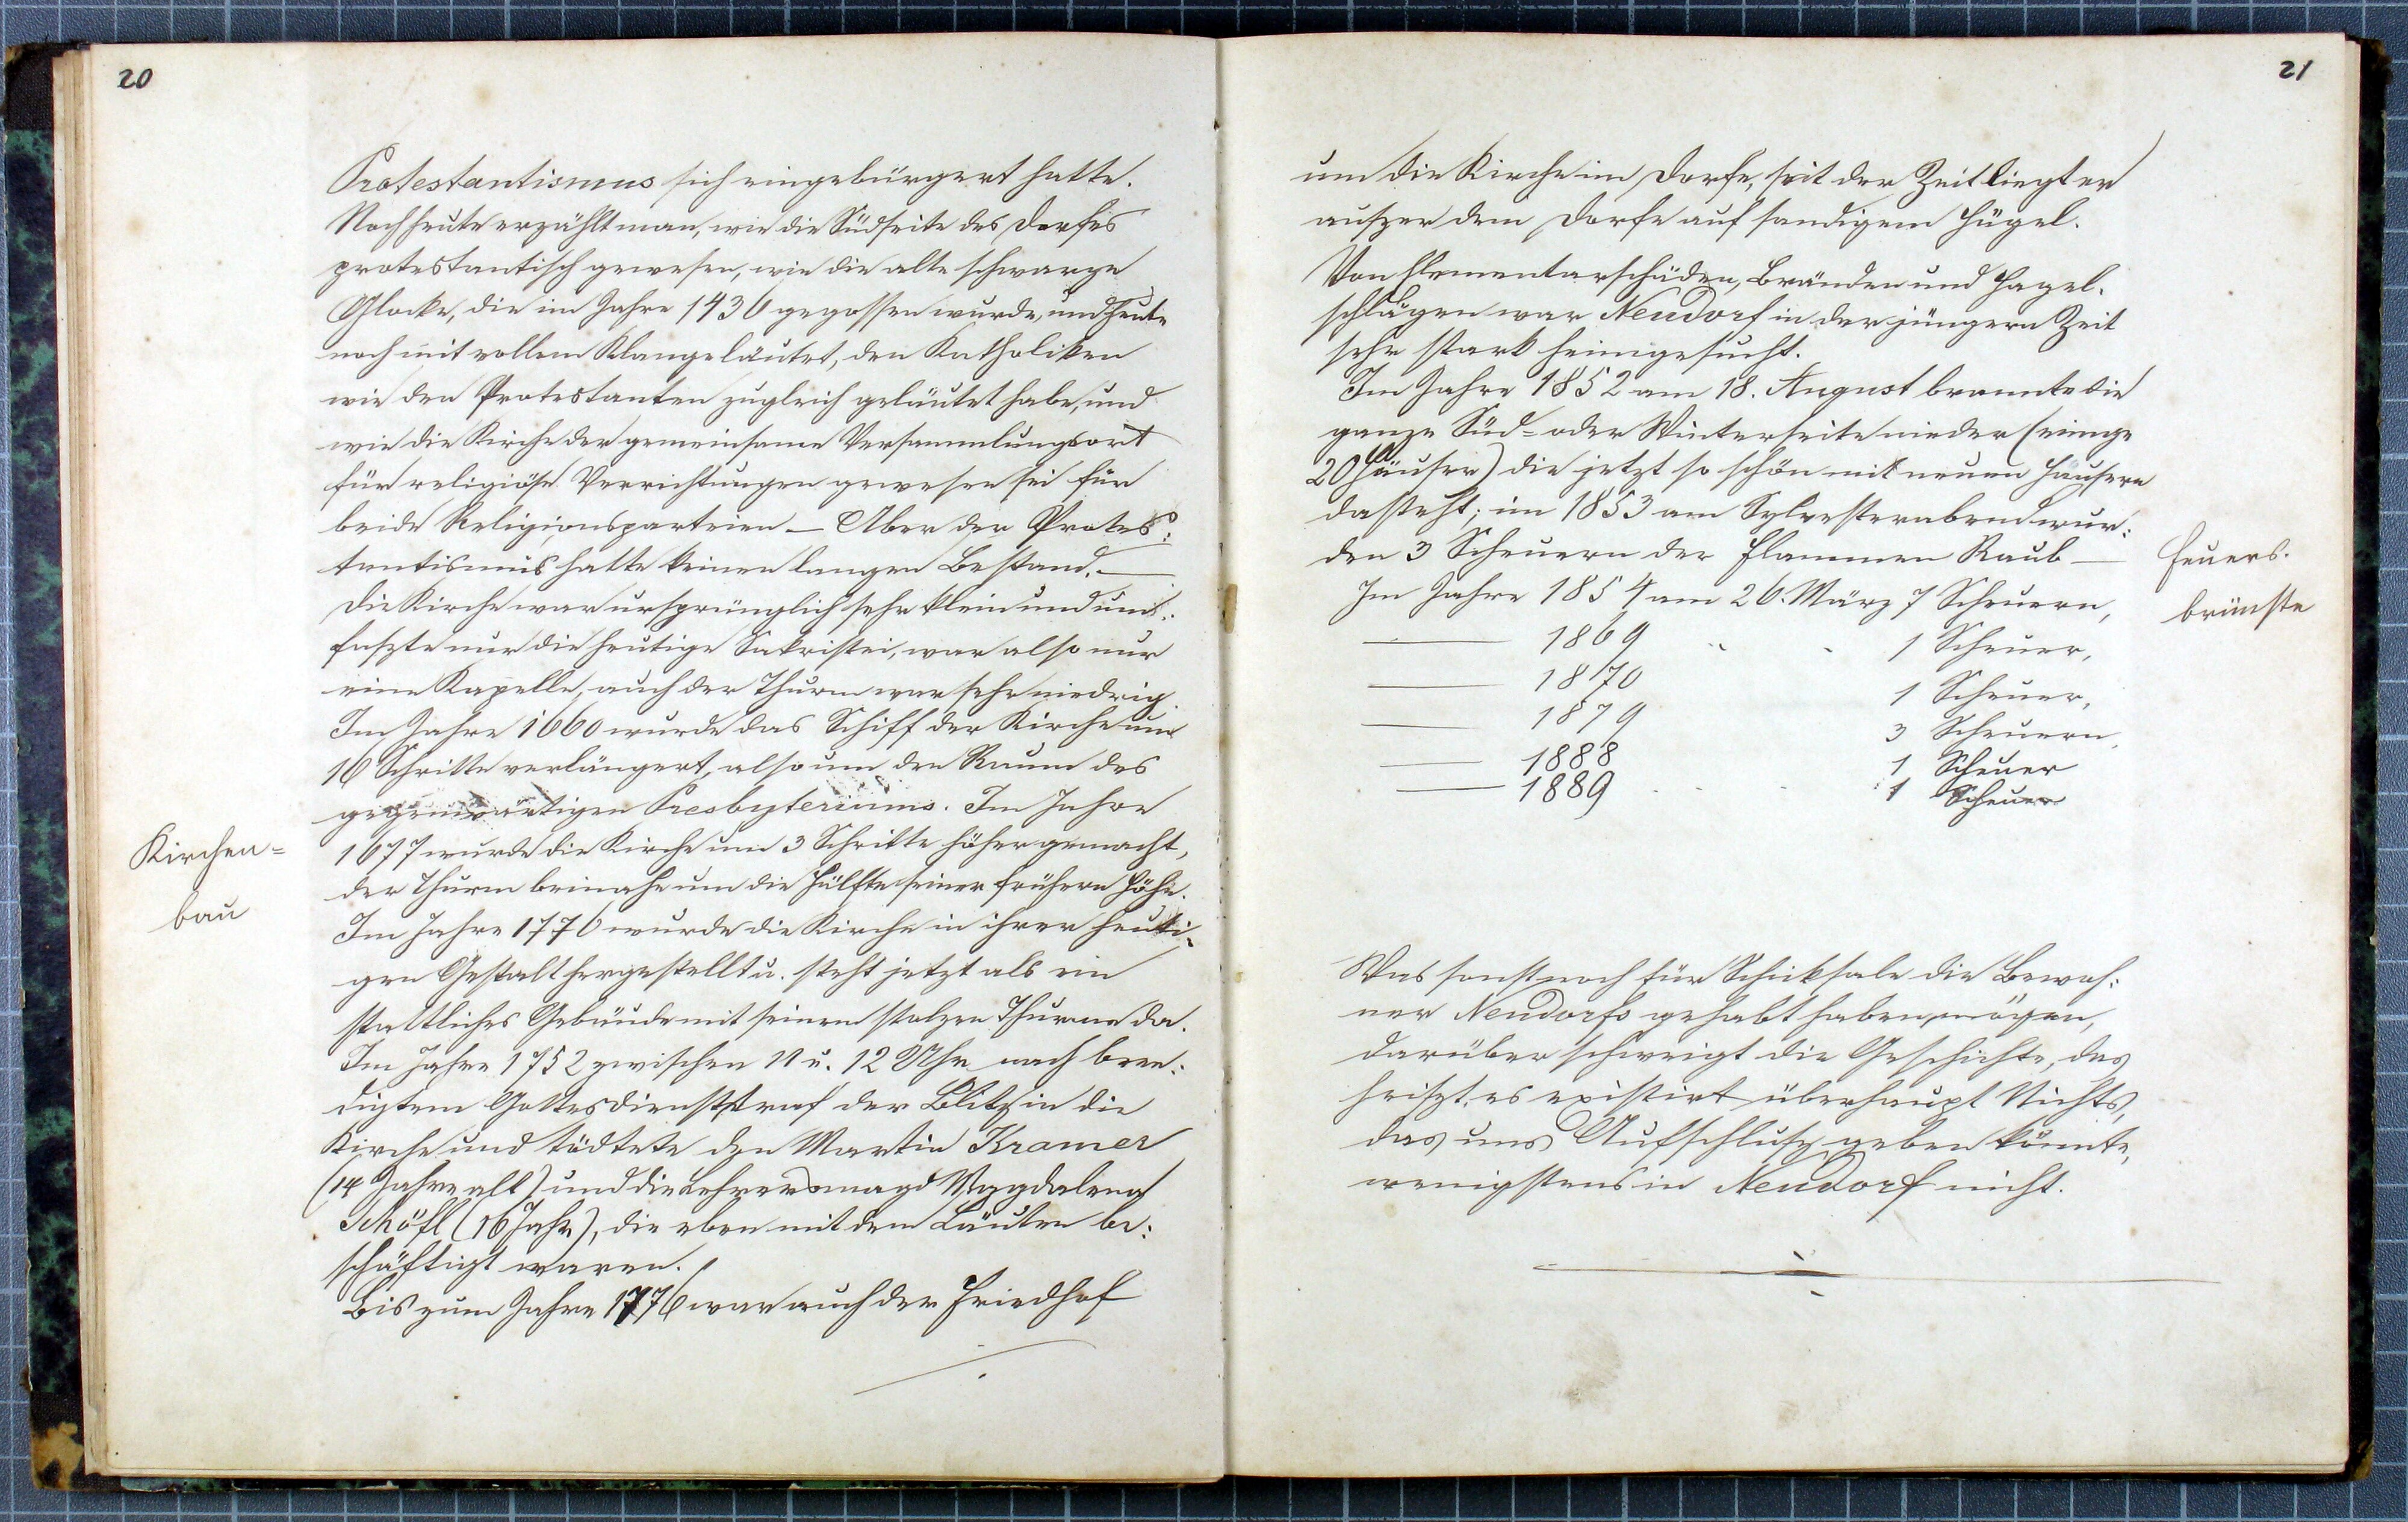 20
Protestantismus sich eingebürgert hatte.
Noch heute erzählt man, wie die Südseite des Dorfes
protestantisch gewesen, wie die alte schwarze
Glocke, die im Jahre 1436 gegossen wurde, und heute
noch mit vollem Klange läutet, den Katholiken
wie den Protestanten zugleich geläutet habe, und
wie die Kirche der gemeinsame Versammlungsort
für religiöse Verrichtungen gewesen sei für
beide Religionsparteien – Aber der Protes:
tantismus hatte keinen langen Bestand. –
Die Kirche war ursprünglich sehr klein und um:
faszte nur die heutige Sakristei, war also nur
eine Kapelle, auch der Thurm war sehr niedrig.
Im Jahre 1660 wurde das Schiff der Kirche um
16 Schritte verlängert, also um den Raum des
gegenwärtigen Presbyteriums. Im Jahre
Kirchen=
bau
1677 wurde die Kirche um 3 Schritte höher gemacht,
der Thurm beinahe um die Hälfte seiner frühern Höhe.
Im Jahre 1776 wurde die Kirche in ihrer heuti-
gen Gestalt hergestellt u. steht jetzt als ein
stattliches Gebäude mit seinem stolzen Thurme da.
Im Jahre 1752 zwischen 11 u. 12 Uhr nach been:
digtem Gottesdienst traf der Blitz in die
Kirche und tödtete den Martin Kramer
(14 Jahre alt) und die Lehrersmagd Magdalena
Schöfl (16 Jahr), die eben mit dem Läuten be:
schäftigt waren.
Bis zum Jahre 1776 war auch der Friedhof
21
um die Kirche im Dorfe, seit der Zeit liegt er
auszer dem Dorfe auf sandigem Hügel.
Von Elementarschäden, Bränden und Hagel-
schlägen war Neudorf in der jüngern Zeit
sehr stark heimgesucht.
Im Jahre 1852 am 18. August brannte die
ganze Süd- oder Winterseite nieder (einige
20 Häuser) die jetzt so schön mit neuen Häusern
dasteht; im 1853 am Sylvesterabend wur:
den 3 Scheuern der Flammen Raub –
Feuers-
brünste
Im Jahre 1854 am 26. März 7 Scheuern,
— 1869 " " 1 Scheuer,
— 1870 1 Scheuer,
— 1879 3 Scheuern,
— 1888 1 Scheuer
— 1889 1 Scheuer
Was sonst noch für Schicksale die Bewoh:
ner Neudorfs gehabt haben mögen,
darüber schweigt die Geschichte, das
heiszt, es existirt überhaupt Nichts,
das uns Aufschlusz geben könnte,
wenigstens in Neudorf nicht.